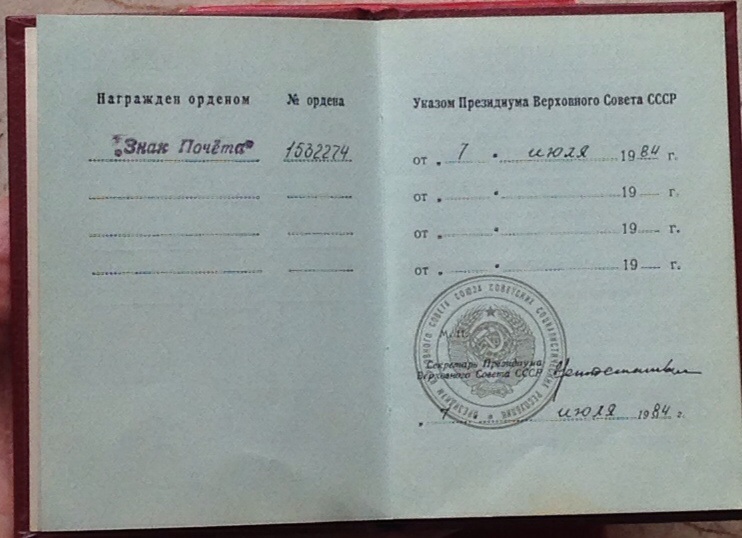 Награжден орденом № ордена
"Знак Почёта" 1532274
Указом Президиума Верховного Совета СССР
от „ 7 “ июля 1984 г.
от „ “ 19 г.
от „ “ 19 г.
от „ “ 19 г.
ПРЕЗИДИУМ ВЕРХОВНОГО СОВЕТА СОЮЗА СОВЕТСКИХ СОЦИАЛИСТИЧЕСКИХ РЕСПУБЛИК
М.П.
Секретарь Президиума
Верховного Совета СССР
„ 7 “ июля 1984 г.